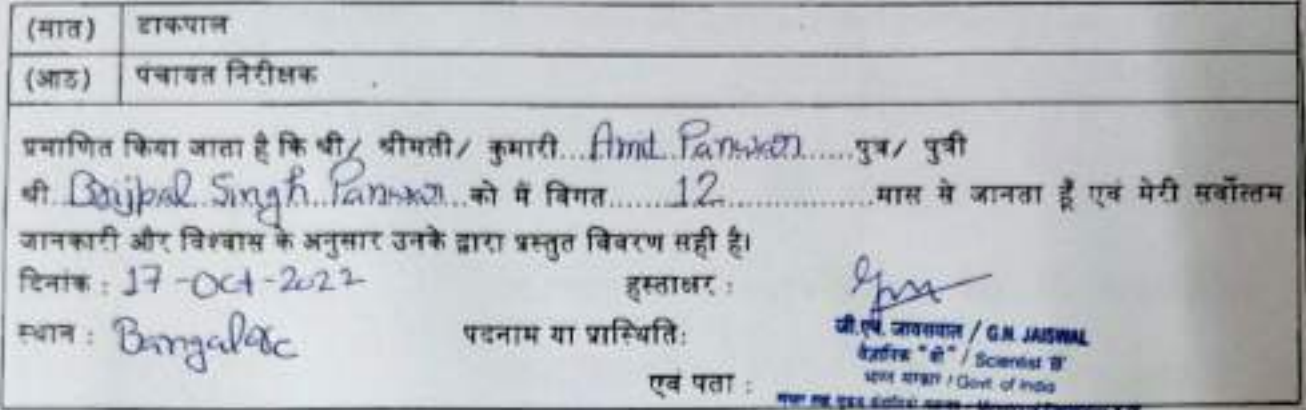 (सात) डाकपाल
(आठ) पंचायत निरीक्षक
प्रमाणित किया जाता है कि श्री/ श्रीमती/ कुमारी...Amit Panwar......पुत्र/ पुत्री
श्री Brijpal Singh Panwar...को मैं विगत.......12..................मास से जानता हूँ एवं मेरी सर्वोत्तम
जानकारी और विश्वास के अनुसार उनके द्वारा प्रस्तुत विवरण सही है।
दिनांक : 17-Oct-2022 हस्ताक्षर :
स्थान : Bangalore पदनाम या प्रास्थिति:
जी.एन. जायसवाल / G.N. JAISWAL
वैज्ञानिक "बी" / Scientist 'B'
एवं पता : भारत सरकार / Govt of India